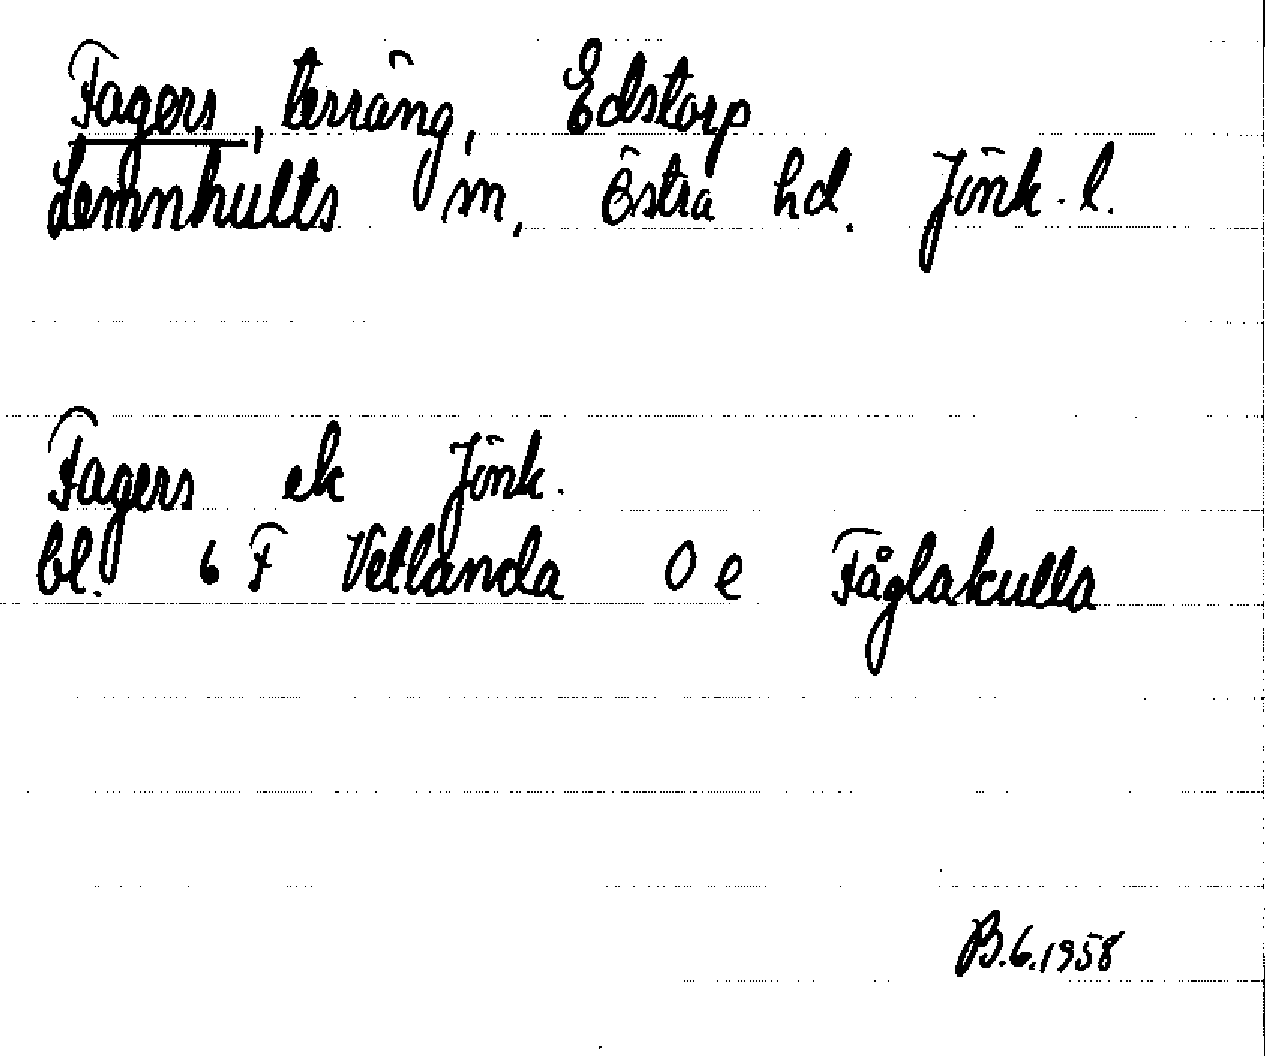 Fagers, terräng, Edstorp
Lemnhults sn, Östra hd. Jönk. l.
Fagers ek Jönk.
bl. 6 F Vetlanda 0 e Fåglakulla
B.G.1958